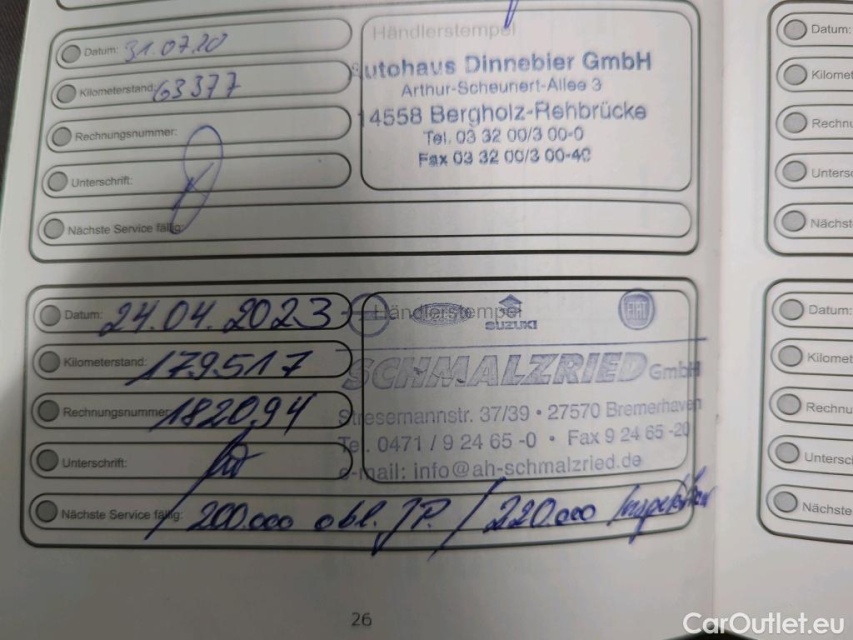 Datum: 31.07.20
Händlerstempel
Kilometerstand: 63377
utohaus Dinnebier GmbH
Arthur-Scheunert-Allee 3
14558 Bergholz-Rehbrücke
Tel. 03 32 00/3 00-0
Fax 03 32 00/3 00-40
Rechnungsnummer:
Unterschrift:
Nächste Service fällig:
Datum: 24.04.2023
Händlerstempel
SUZUKI
FIAT
Kilometerstand: 179517
SCHMALZRIED GmbH
Rechnungsnummer 182094
Stresemannstr. 37/39 • 27570 Bremerhaven
Tel. 0471 / 9 24 65 -0 • Fax 9 24 65 -20
e-mail: info@ah-schmalzried.de
Unterschrift:
Nächste Service fällig: 200.000 obl. JP. / 220.000 Inspektion
26
Datum:
Kilomet
Rechnu
Untersc
Nächst
Datum:
Kilomet
Rechnu
Untersc
Nächste
CarOutlet.eu